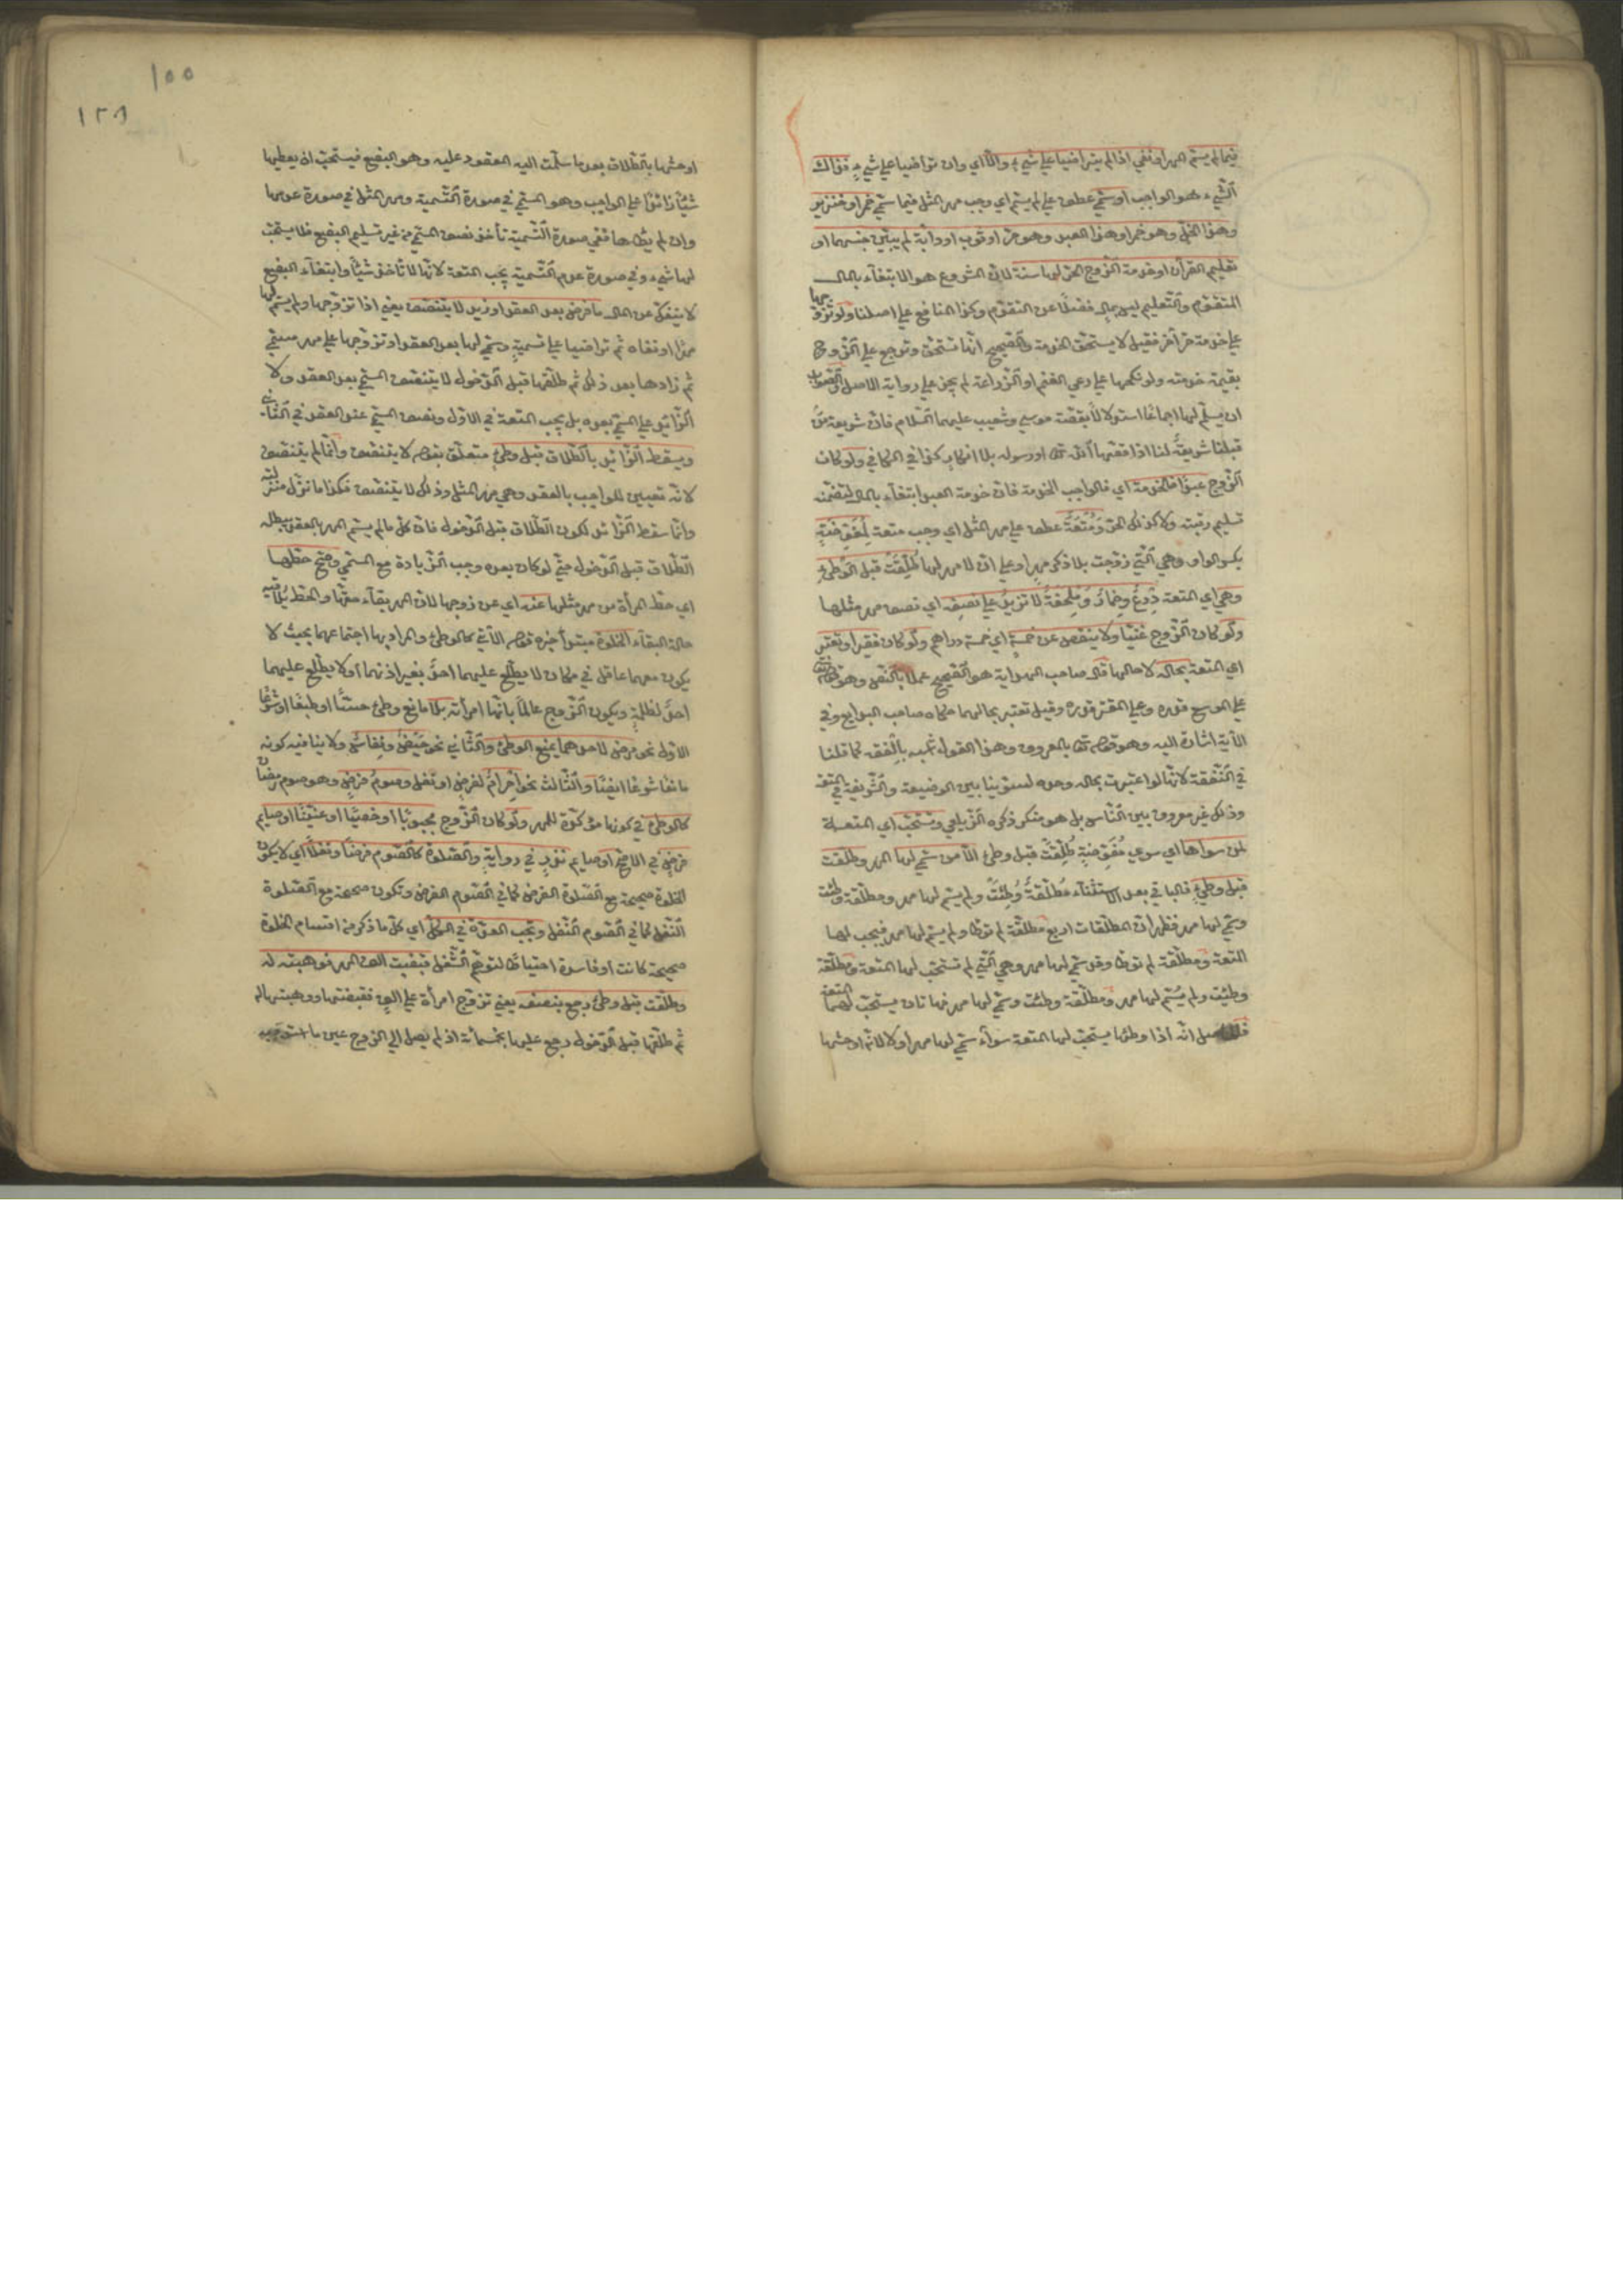 فيما لم يسم المهر او نفي اذا لم يتراضيا علي شيء والا اي وان تواضيا علي شيء فذاك
الشيء هو الواجب او سمي عطف علي لم يسم اي وجب مهر المثل فيما سمي خمر او خنزير
وهذا الخل وهو خمر او هذا العبد وهو حر او ثوب او دابة لم يبين جنسهما او
تعليم القرآن او خدمة الزوج الحر لها سنة لان المشروع هو الابتغاء بالمال
المتقوم والتعليم ليس بمال فضلا عن التقوم وكذا المنافع علي اصلنا ولو تزوجها
علي خدمة حر آخر فقيل لا يستحق الخدمة والصحيح انها تستحق وترجع علي الزوج
بقيمة خدمته ولو نكحها علي رعي الغنم او الزراعة لم يجز علي رواية الاصل والصواب
ان يسلم لها اجماعا استدلالا بقصة موسي وشعيب عليهما السلام فان شريعة من
قبلنا شريعة لنا اذا قصها الله تعالى او رسوله بلا انكار كذا في الكافي ولو كان
الزوج عبدا فالخدمة اي فالواجب الخدمة فان خدمة العبد ابتغاء بالمال لتضمنه
تسليم رقبته ولا كذلك الحر ومتعة عطف علي مهر المثل اي وجب متعة لمفوضة
بكسر الواو وهي التي زوجت بلا ذكر مهر او علي ان لا مهر لها طلقت قبل الوطئ
وهي اي المتعة درع وخمار وملحفة لا تزيد علي نصفه اي نصف مهر مثلها
ولو كان الزوج غنيا ولا ينقص عن خمسة اي خمسة دراهم ولو كان فقيرا وتعتبر
اي المتعة بحاله لا حالها قال صاحب الهداية هو الصحيح عملا بالنص وهو قوله تعالى
علي الموسع قدره وعلي المقتر قدره وقيل تعتبر بحالهما حكاه صاحب البدايع وفي
الآية اشارة اليه وهو قوله تعالى بالمعروف وهذا القول شبيه بالفقه كما قلنا
في النفقة لانها لو اعتبرت بحاله وحده لسوينا بين الوضيعة والشريفة في المتعة
وذلك غير معروف بين الناس بل هو منكر ذكره الزيلعي وتستحب اي المتعة
لمن سواها اي سوي مفوضة طلقت قبل وطئ الا من سمي لها المهر وطلقت
قبل وطئ فالباقي بعد الاستثناء مطلقة وطئت ولم يسم لها مهر ومطلقة وطئت
وسمي لها مهر فظهر ان المطلقات اربع مطلقة لم توطأ ولم يسم لها مهر فيجب لها
المتعة ومطلقة لم توطأ وقد سمي لها مهر وهي التي لم تستحب لها المتعة ومطلقة
وطئت ولم يسم لها مهر ومطلقة وطئت وسمي لها مهر فهاتان يستحب لهما المتعة
فالحاصل انه اذا وطئها يستحب لها المتعة سواء سمي لها مهر او لا لانه اوحشها
١٥٥
١٢٨
اوحشها بالطلاق بعد ما سلمت اليه المعقود عليه وهو البضع فيستحب ان يعطيها
شيئا زائدا علي الواجب وهو المسمي في صورة التسمية ومهر المثل في صورة عدمها
وان لم يطأها ففي صورة التسمية تأخذ نصف المسمي من غير تسليم البضع فلا يستحب
لها شيء وفي صورة عدم التسمية يجب المتعة لانها لا تأخذ شيئا وابتغاء البضع
لا ينفك عن المال ما فرض بعد العقد او زيد لا يتنصف يعني اذا تزوجها ولم يسم لها
مهرا او نفاه ثم تراضيا علي تسمية وسمي لها بعد العقد او تزوجها علي مهر مسمي
ثم زادها بعد ذلك ثم طلقها قبل الدخول لا يتنصف المسمي بعد العقد ولا
الزائد علي المسمي بعده بل يجب المتعة في الاول ونصف المسمي عند العقد في الثاني
ويسقط الزائد بالطلاق قبل وطئ متعلق بقوله لا يتنصف وانما لم يتنصف
لانه تعيين للواجب بالعقد وهو مهر المثل وذلك لا يتنصف فكذا ما نزل منزلته
وانما سقط الزائد لكون الطلاق قبل الدخول فان كل ما لم يسم المهر بالعقد يبطله
الطلاق قبل الدخول حتي لو كان بعده وجب الزيادة مع المسمي وصح حطها
اي حط المرأة من مهر مثلها عنه اي عن زوجها لان المهر بقاء حقها والحط يلاقيه
حالة البقاء الخلوة مبتدأ خبره قوله الآتي كالوطئ والمراد بها اجتماعهما بحيث لا
يكون معهما عاقل في مكان لا يطلع عليهما احد بغير اذنهما او لا يطلع عليهما
احد لظلمة ويكون الزوج عالما بانها امرأته بلا مانع وطئ حسا او طبعا او شرعا
الاول نحو مرض لاحدهما يمنع الوطئ والثاني نحو حيض ونفاس ولا ينافيه كونه
مانعا شرعا ايضا والثالث نحو احرام لفرض او نفل وصوم فرض وهو صوم رمضان
كالوطئ في كونها مؤكدة للمهر ولو كان الزوج مجبوبا او خصيا او عنينا او صايم
فرض في الاصح او صايم نذر في رواية والصلوة كالصوم فرضا ونفلا اي لا يكون
الخلوة صحيحة مع الصلوة الفرض كما في الصوم الفرض وتكون صحيحة مع الصلوة
النفل كما في الصوم النفل وتجب العدة في الكل اي كل ما ذكر من اقسام الخلوة
صحيحة كانت او فاسدة احتياطا لتوهم الشغل قبضت الف المهر فوهبته له
وطلقت قبل وطئ رجع بنصفه يعني تزوج امرأة علي الف فقبضتها ووهبتها له
ثم طلقها قبل الدخول رجع عليها بخمسمائة اذ لم يصل الي الزوج عين ما استوجبه